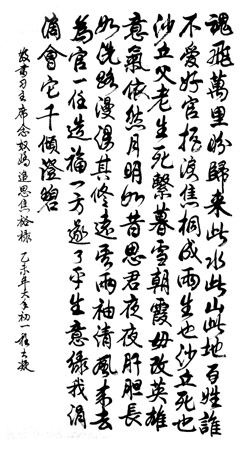 魂飛萬里盼歸来此水此山此地百姓誰
不愛好官把淚焦桐成雨生也沙丘死也
沙丘父老生死繫暮雪朝霜毋改英雄
意氣依然月明如昔思君夜夜肝胆長
如洗路漫漫其修遠矣兩袖清風来去
為官一任造福一方遂了平生意綠我涓
滴會它千頃澄碧
敬書习主席念奴嬌追思焦裕祿 乙未年大年初一